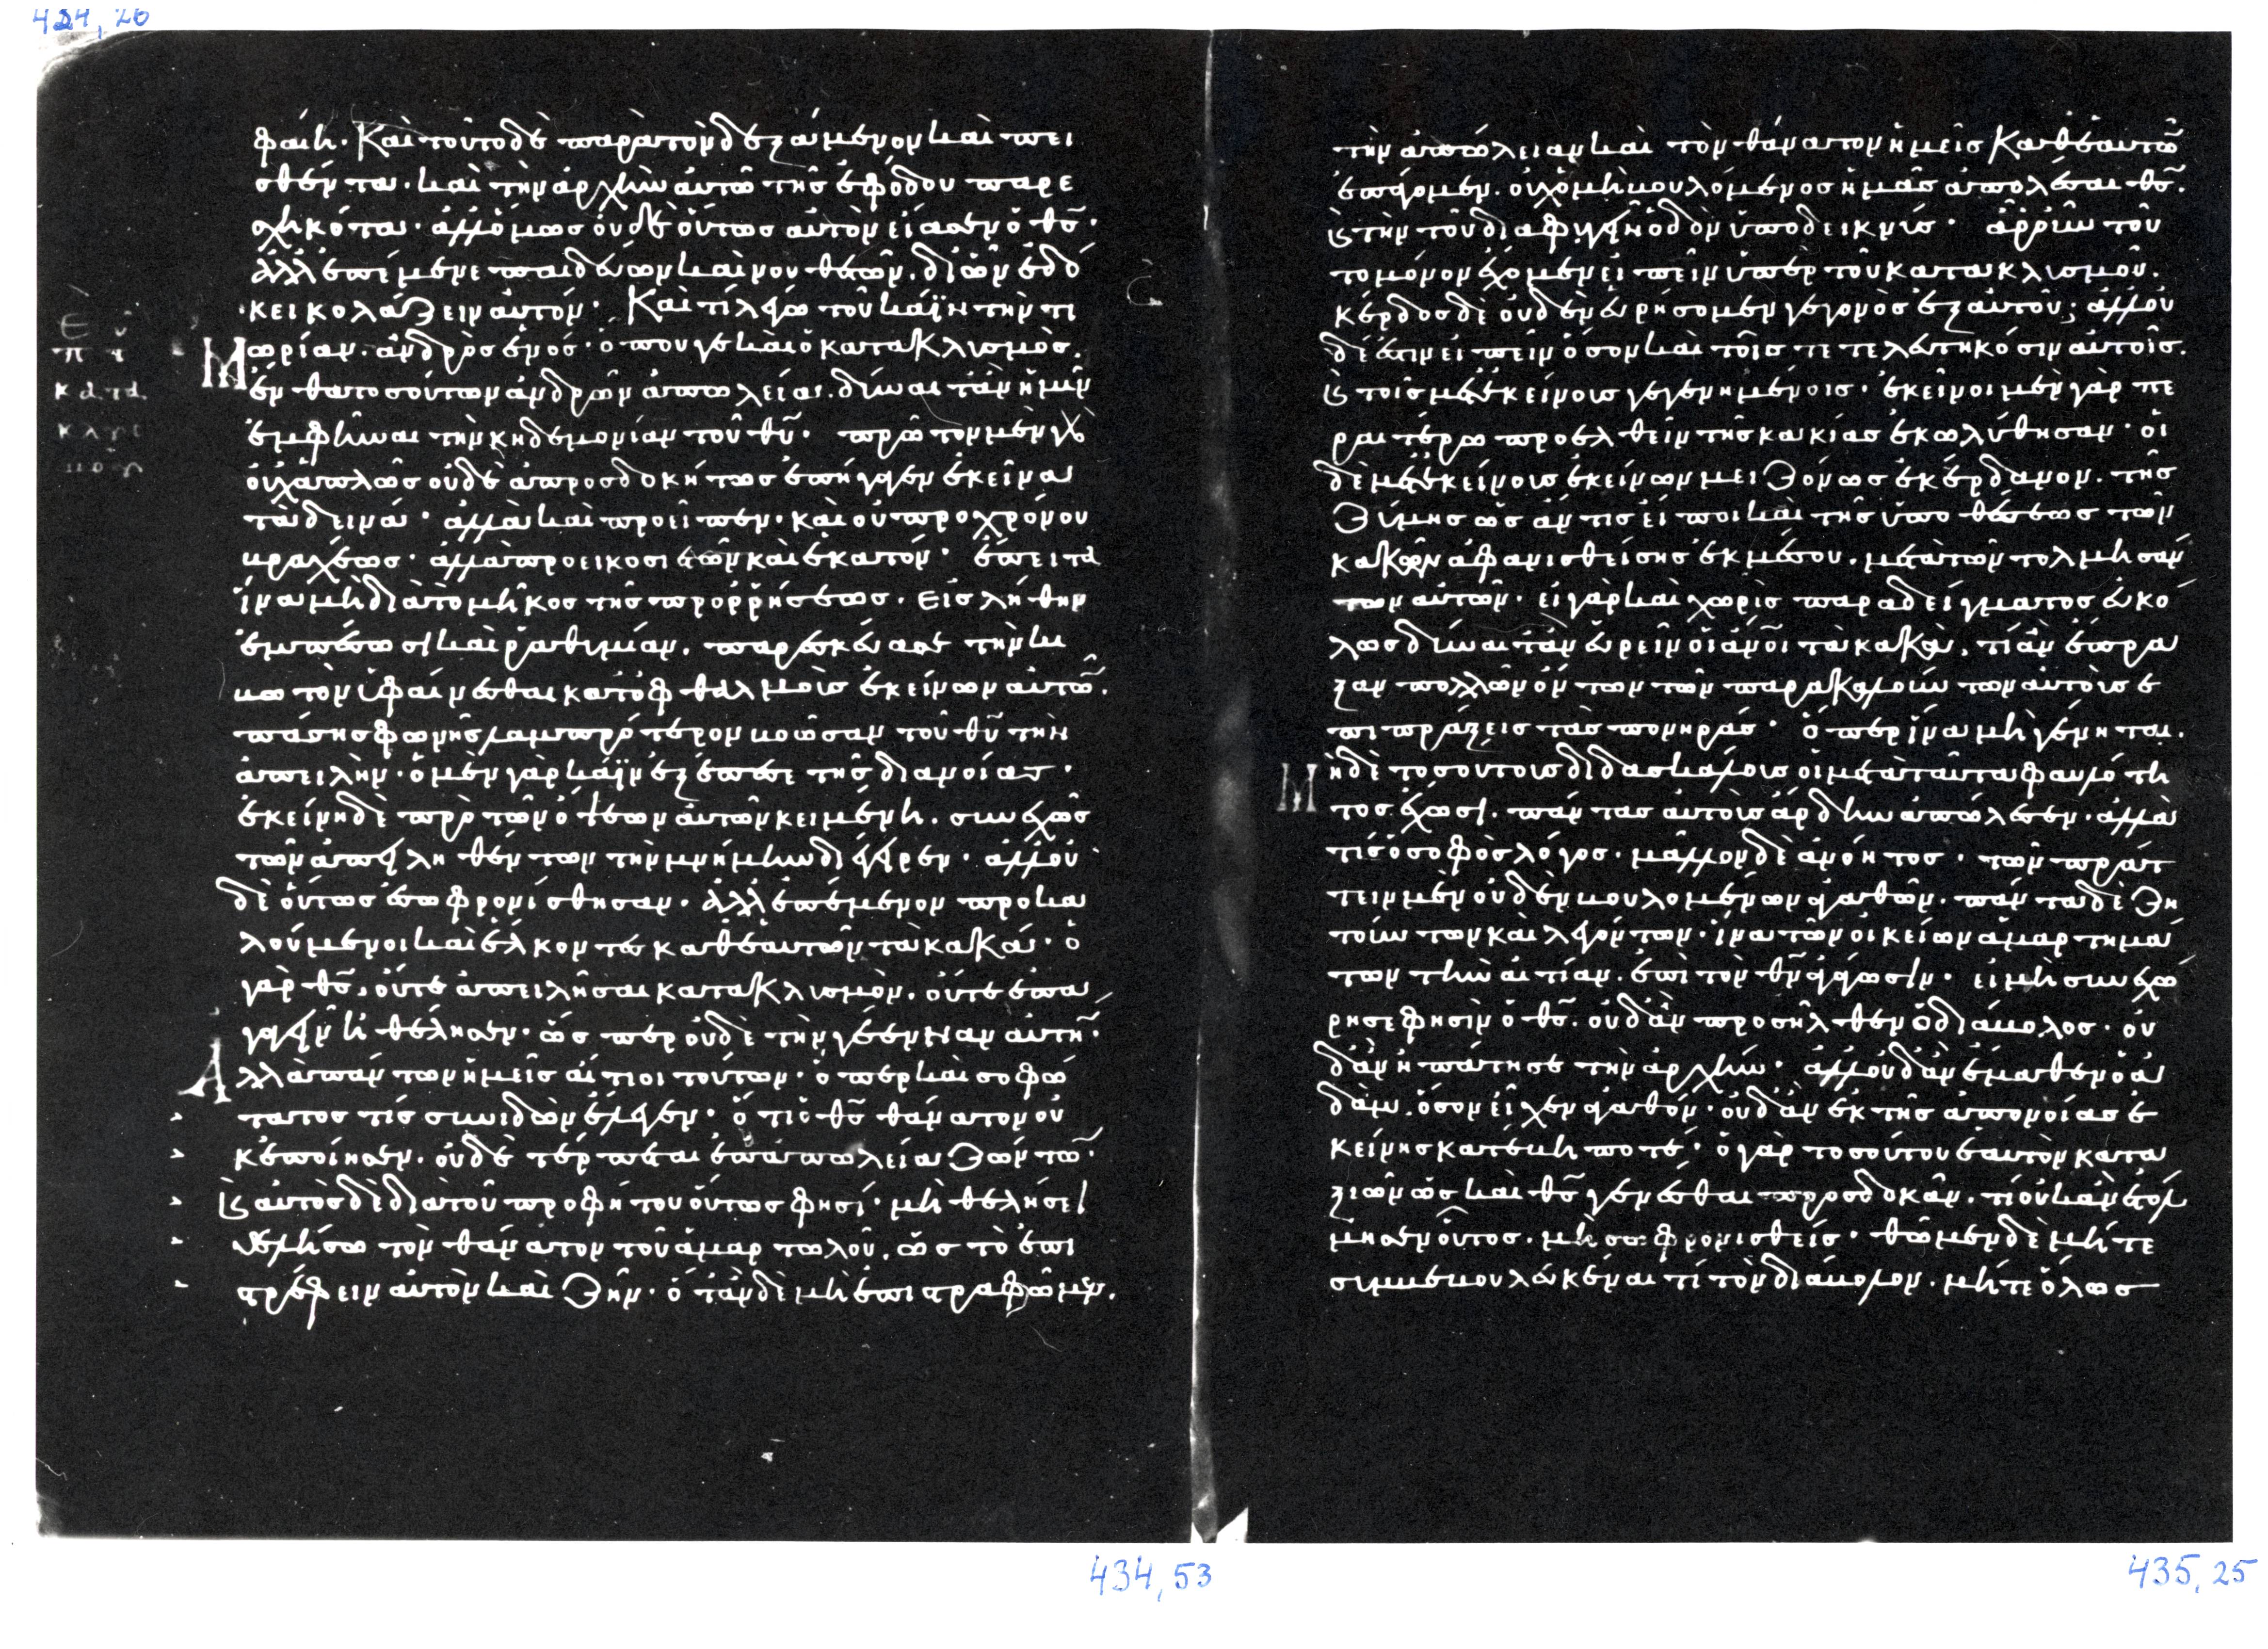 424, 26
φάνη. Καὶ τοῦτο δὲ παρὰ τὸν δεξάμενον καὶ πει
σθέντα. καὶ τὴν ἀρχὴν αὐτῶ τῆς ἐφόδου παρε
σχηκότα. ἀλλ' ὅμως οὐδὲ οὕτως αὐτὸν εἴασεν ὁ θς̅.
ἀλλ' ἐπέμενε παιδεύων καὶ νουθετῶν. δι' ὧν ἐδό
κει κολάζειν αὐτόν. Καὶ τί λέγω τοῦ κάϊν τὴν τι
μωρίαν. ἀνδρὸς ἑνός. ὅπου γε καὶ ὁ κατακλυσμὸς.
ἐν θα τοσούτων ἀνδρῶν ἀπώλεια. δύναιτ' ἂν ἡμῖν
ἐμφῆναι τὴν κηδεμονίαν τοῦ θυ̅. πρῶτον μὲν γὰρ
οὐχ ἁπλῶς οὐδὲ ἀπροσδοκήτως ἐπήγαγεν ἐκεῖνα
τὰ δεινά. ἀλλὰ καὶ προεῖπεν. καὶ οὐ πρὸ χρόνου
βραχέως. ἀλλὰ πρὸ εἴκοσι ἐτῶν καὶ ἑκατόν. ἔπειτα
ἵνα μὴ διὰ τὸ μῆκος τῆς προρρήσεως. εἰς λήθην
ἐμπέσωσι καὶ ῥαθυμίαν. παρεσκεύασε τὴν κι
βωτὸν ὑφαίνεσθαι κατ' ὀφθαλμοὺς ἐκείνων αὐτῶν.
πάσης φωνῆς λαμπρότερον βοῶσαν τοῦ θυ̅ τὴν
ἀπειλήν. ὁ μὲν γὰρ κάϊν ἐξέπεσε τῆς διανοίας.
ἐκείνη δὲ πρὸ τῶν ὄψεων αὐτῶν κειμένη. συνεχῶς
τῶν ἀπειληθέντων τὴν μνήμην διήγειρεν. ἀλλ' οὐ
δὲ οὕτως ἐσωφρονίσθησαν. ἀλλ' ἐπέμενον προκα
λούμενοι καὶ ἕλκοντες καθ' ἑαυτῶν τὰ κακά. ὁ
γὰρ θς̅, οὔτε ἀπειλῆσαι κατακλυσμὸν. οὔτε ἐπα
γαγεῖν ἠθέλησεν. ὥσπερ οὐδὲ τὴν γέενναν αὐτὴν.
Ἀλλὰ πάντων ἡμεῖς αἴτιοι τούτων. ὅπερ καὶ σοφώ
τατος τίς συνιδὼν ἔλεγεν. ὅτι ὁ θς̅ θάνατον οὐ
κ ἐποίησεν. οὐδὲ τέρπεται ἐπ' ἀπωλεία ζώντων.
καὶ αὐτὸς δὲ διὰ τοῦ προφήτου οὕτως φησί. μὴ θελήσει
θελήσω τὸν θάνατον τοῦ ἁμαρτωλοῦ. ὡς τὸ ἐπι
στρέφειν αὐτὸν καὶ ζῆν. ὅταν δὲ μὴ ἐπιστραφῶμεν.
κατα
κλυσ
μοῦ
434, 53
τὴν ἀπώλειαν καὶ τὸν θάνατον ἡμεῖς καθ' ἑαυτῶν
ἐπάγομεν. οὐχ ὁ μὴ βουλόμενος ἡμᾶς ἀπολέσαι θς̅.
καὶ τὴν τοῦ διαφυγεῖν ὁδὸν ὑποδεικνύς. ἆρ' οὖν τοῦ
το μόνον ἔχομεν εἰπεῖν ὑπὲρ τοῦ κατακλυσμοῦ.
κέρδος δὲ οὐδὲν εὑρήσομεν γεγονὸς ἐξ αὐτοῦ; ἀλλ' οὐ
δὲ ἔστιν εἰπεῖν ὅσον καὶ τοῖς τετελευτηκόσιν αὐτοῖς.
καὶ τοῖς μετ' ἐκείνους γεγενημένοις. ἐκεῖνοι μὲν γὰρ πε
ραιτέρω προσελθεῖν τῆς κακίας ἐκωλύθησαν. οἱ
δὲ μετ' ἐκείνους ἐκείνων μειζόνως ἐκέρδανον. τῆς
ζύμης ὡς ἄν τις εἴποι καὶ τῆς ὑποθέσεως τῶν
κακῶν ἀφανισθείσης ἐκ μέσου. μετὰ τῶν τολμησάν
των αὐτῶν. εἰ γὰρ καὶ χωρὶς παραδείγματος εὐκό
λως δύναιντ' ἂν εὑρεῖν οἱ ἄνοι τὰ κακά. τί ἂν ἔπρα
ξαν πολλῶν ὄντων τῶν παρακαλούντων αὐτοὺς ἐ
πὶ πράξεις τὰς πονηράς. ὅπερ ἵνα μὴ γένηται.
Μηδὲ τοσούτους διδασκάλους οἱ μετὰ ταῦτα φαυλότη
τος ἔχωσι. πάντας αὐτοὺς ἄρδην ἀπώλεσεν. ἀλλὰ
τίς ὁ σοφὸς λόγος. μᾶλλον δὲ ἀνόητος. τῶν πράτ
τειν μὲν οὐδὲν βουλομένων ἀγαθῶν. πάντα δὲ ζη
τούντων καὶ λεγόντων. ἵνα τῶν οἰκείων ἁμαρτημά
των τὴν αἰτίαν. ἐπὶ τὸν θν̅ ἀγάγωσιν. εἰ μὴ συνεχώ
ρησε φησὶν ὁ θς̅. οὐδ' ἂν προσῆλθεν ὁ διάβολος. οὐ
δ' ἂν ἠπάτησε τὴν ἀρχήν. ἀλλ' οὐδ' ἂν ἔμαθεν ὁ ἀ
δάμ. ὅσον εἶχεν ἀγαθόν. οὐδ' ἂν ἐκ τῆς ἀπονοίας ἐ
κείνης κατέβη ποτέ. ὁ γὰρ τοσούτου ἑαυτὸν κατα
ξιῶν ὡς καὶ θς̅ γενέσθαι προσδοκᾶν. τί οὐκ ἂν ἐτόλ
μησεν οὗτος. μὴ σωφρονισθείς. θῶμεν δὲ μήτε
συμβεβουλευκέναι τί τὸν διάβολον. μήτε ὅλως
435, 25